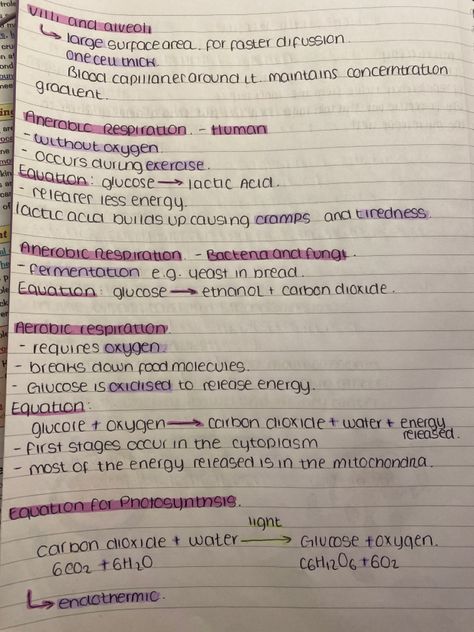 Villi and alveoli
↳ large surface area. for faster difussion.
one cell thick.
Blood capillaries around it. maintains concerntration
gradient.
Anerobic Respiration. - Human
- without oxygen.
- occurs during exercise.
Equation: glucose → lactic Acid.
- releases less energy.
lactic acid builds up causing cramps and tiredness.
Anerobic Respiration. - Bacteria and fungi.
- fermentation e.g. yeast in bread.
Equation: glucose → ethanol + carbon dioxide.
Aerobic respiration.
- requires oxygen.
- breaks down food molecules.
- Glucose is oxidised to release energy.
Equation:
glucose + oxygen → carbon dioxide + water + energy released.
- first stages occur in the cytoplasm
- most of the energy released is in the mitochondna.
Equation for Photosynthsis.
light
carbon dioxide + water → Glucose + oxygen.
6CO2 + 6H2O C6H12O6 + 6O2
↳ endothermic.